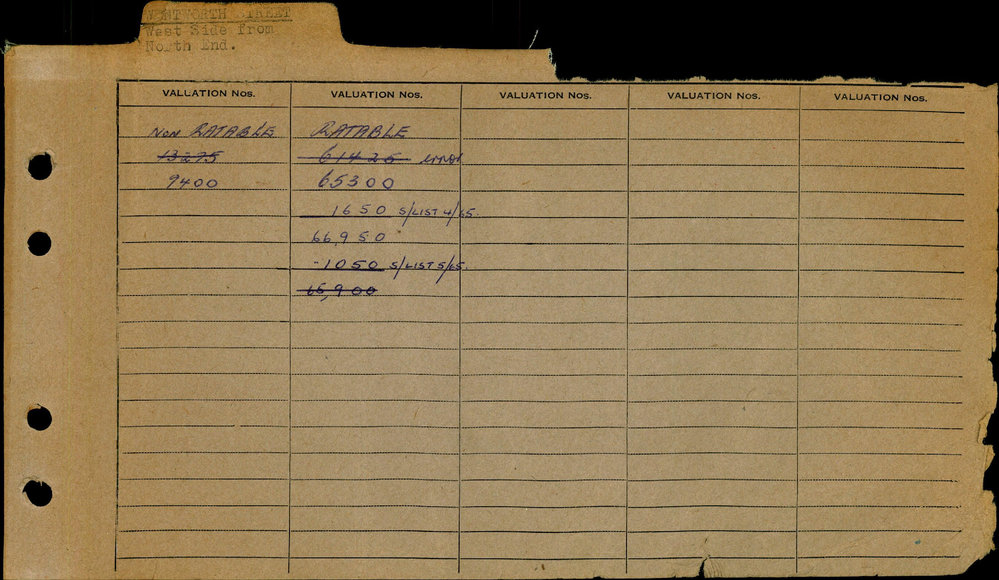 WENTWORTH STREET
West Side from
North End.
VALUATION Nos. VALUATION Nos. VALUATION Nos. VALUATION Nos. VALUATION Nos.
NON RATABLE RATABLE
13275 61425 error
9400 65300
1650 S/LIST 4/65.
66,950
-1050 S/LIST 5/65.
65,900